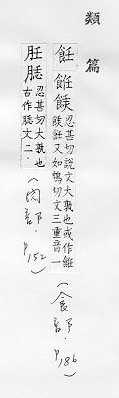 類篇
飪餁
忍甚切說文大熟也或作餁
飪又如鴆切文三重音一
(食部.P186)
忍甚切大熟也
古作文二
(肉部.P152)